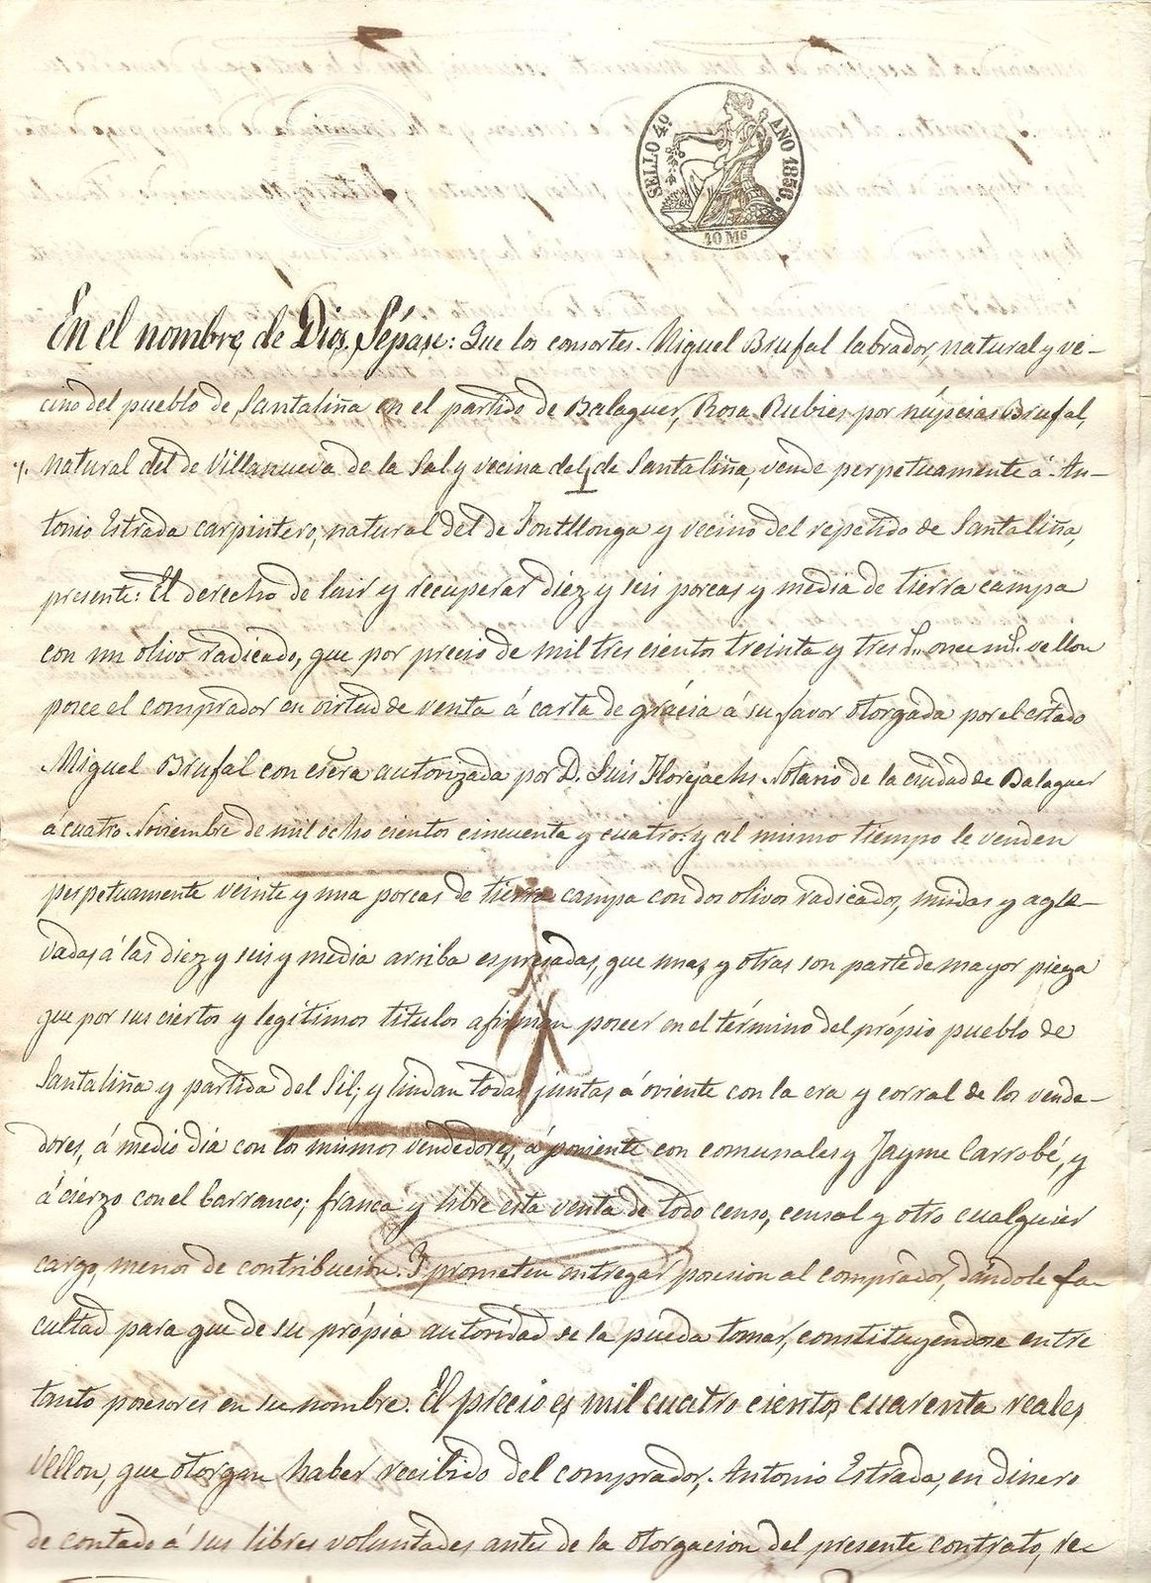 SELLO 4º AÑO 1856.
40 Ms
En el nombre de Dios. Sépase: Que los consortes Miguel Brufal labrador, natural y ve-
cino del pueblo de Santaliña en el partido de Balaguer, Rosa Rubies por núpcias Brufal,
natural del de Villanueva de la Sal y vecina del de Santaliña, vende perpetuamente á An-
tonio Estrada carpintero, natural del de Fontllonga y vecino del repetido de Santaliña,
presente: El derecho de luir y recuperar diez y seis porcas y media de tierra campa
con un olivo radicado, que por precio de mil tres cientos treinta y tres once vellon
posee el comprador en virtud de venta á carta de grácia á su favor otorgada por el citado
Miguel Brufal con escra autorizada por D. Luis Florejachs Notario de la ciudad de Balaguer
á cuatro Noviembre de mil ocho cientos cincuenta y cuatro: y al mismo tiempo le venden
perpetuamente veinte y una porcas de tierra campa con dos olivos radicados, unidas y agle-
vadas á las diez y seis y media arriba espresadas, que unas y otras son parte de mayor pieza
que por sus ciertos y legítimos títulos afirman poseer en el término del própio pueblo de
Santaliña y partida del Sil; y lindan todas juntas á oriente con la era y corral de los vende-
dores, á medio dia con los mismos vendedores, á poniente con comunales y Jayme Carrobé, y
á cierzo con el barranco; franca y libre esta venta de todo censo, censal y otro cualquier
cargo, menos de contribucion. Y prometen entregar posesion al comprador, dándole fa-
cultad para que de su própia autoridad se la pueda tomar, constituyendose entre
tanto posesores en su nombre. El precio es mil cuatro cientos cuarenta reales
vellon, que otorgan haber recibido del comprador, Antonio Estrada, en dinero
de contado á sus libres voluntades antes de la otorgacion del presente contrato, re-